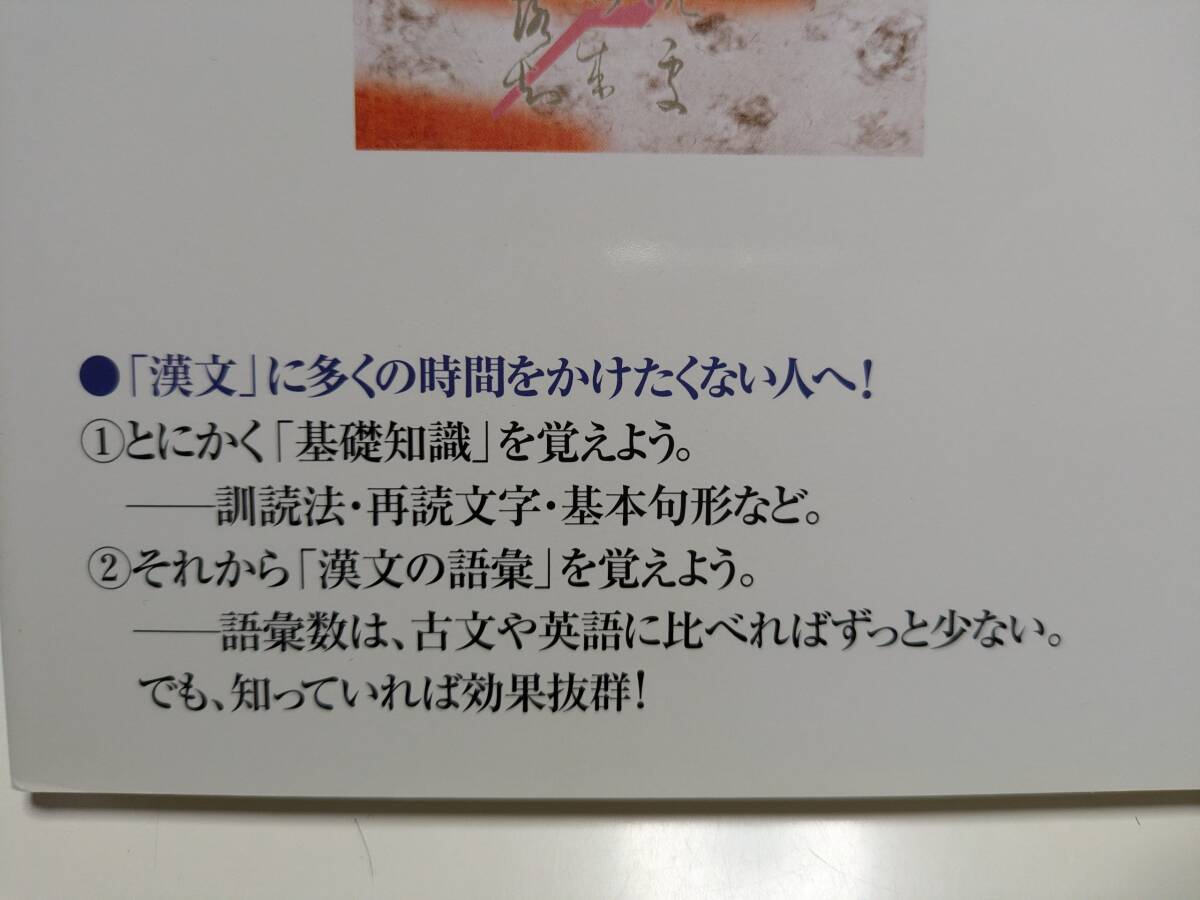 ●「漢文」に多くの時間をかけたくない人へ!
①とにかく「基礎知識」を覚えよう。
——訓読法・再読文字・基本句形など。
②それから「漢文の語彙」を覚えよう。
——語彙数は、古文や英語に比べればずっと少ない。
でも、知っていれば効果抜群!